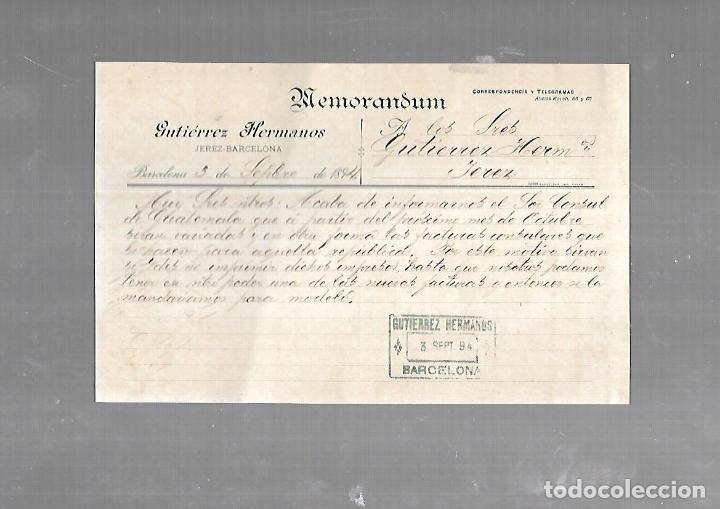 Memorandum
CORRESPONDENCIA Y TELEGRAMAS
Gutiérrez Hermanos
JEREZ-BARCELONA
A los Sres
Gutierrez Herm.ᵒˢ
Jerez
Barcelona 3 de Septbre de 1894
Muy Sres ntros: Acaba de informarnos el Sor Consul
de Guatemala que á partir del próximo mes de Octubre
seran variadas y en otra forma las facturas consulares que
se hacen para aquella republica. Por este motivo sirvan
se Vdes no imprimir dichos impresos, hasta que nosotros podamos
tener en ntro poder una de las nuevas facturas y entonces se la
mandariamos para modelo.
GUTIERREZ HERMANOS
3 SEPT. 94
BARCELONA
todocoleccion.net